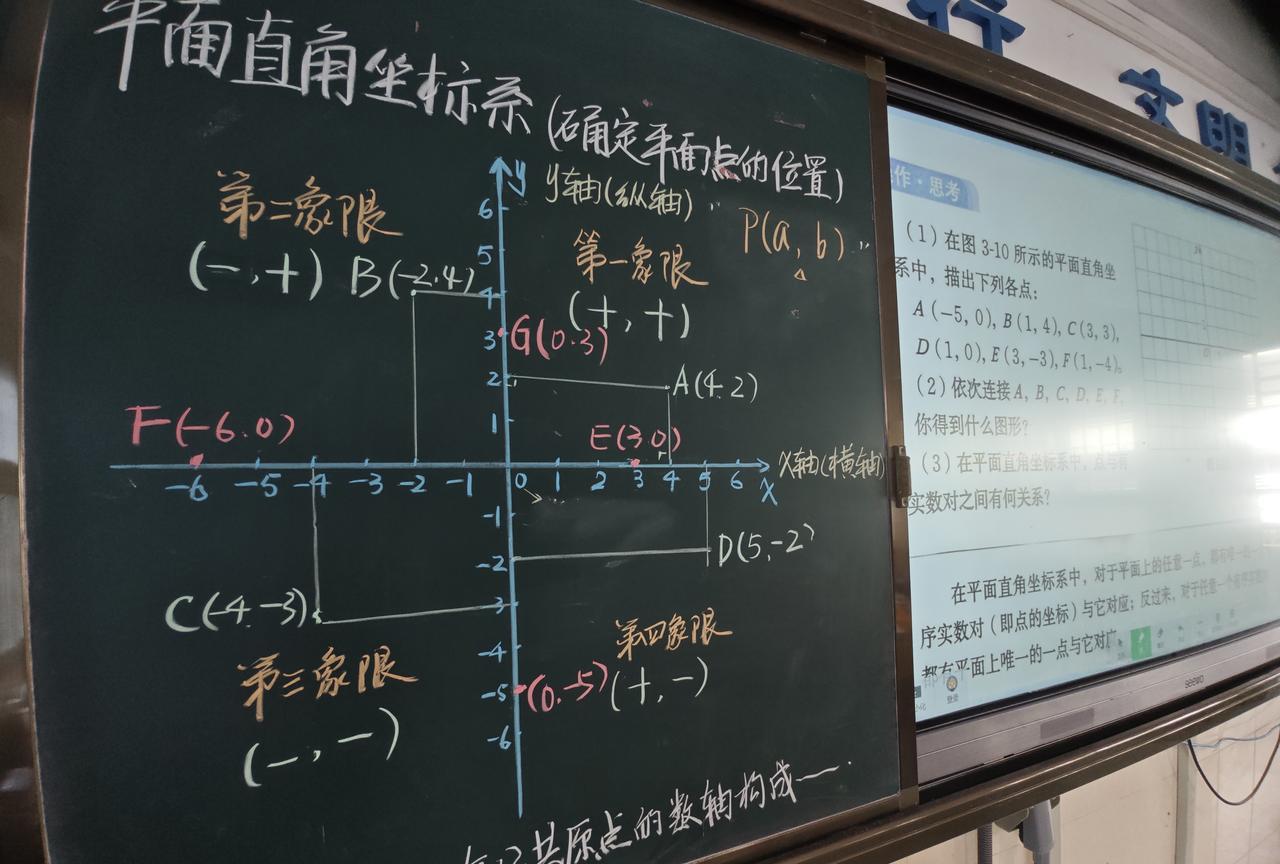 平面直角坐标系(确定平面点的位置)
y
y轴(纵轴)
第二象限
(-,+)
B(-2,4)
第一象限
(+,+)
P(a,b)
6
5
4
3
2
1
G(0.3)
A(4.2)
F(-6.0)
E(3.0)
x轴(横轴)
-6 -5 -4 -3 -2 -1 0 1 2 3 4 5 6 x
-1
-2
3
-4
-5
-6
D(5,-2)
C(-4-3)
第三象限
(-,-)
第四象限
(0.-5)
(+,-)
共原点的数轴构成一
行
文明
作·思考
(1)在图3-10所示的平面直角坐
系中,描出下列各点:
A(-5,0),B(1,4),C(3,3),
D(1,0),E(3,-3),F(1,-4)。
(2)依次连接A,B,C,D,E,F,
你得到什么图形?
(3)在平面直角坐标系中,点与有
实数对之间有何关系?
在平面直角坐标系中,对于平面上的任意一点,都有唯一
序实数对(即点的坐标)与它对应;反过来,对于任意一个
都有平面上唯一的一点与它对应
seewo